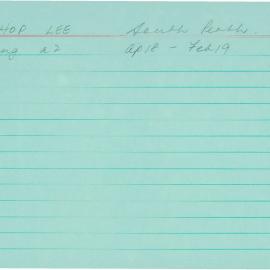 HOP LEE South Perth.
ng a2 Ap18 - Feb19